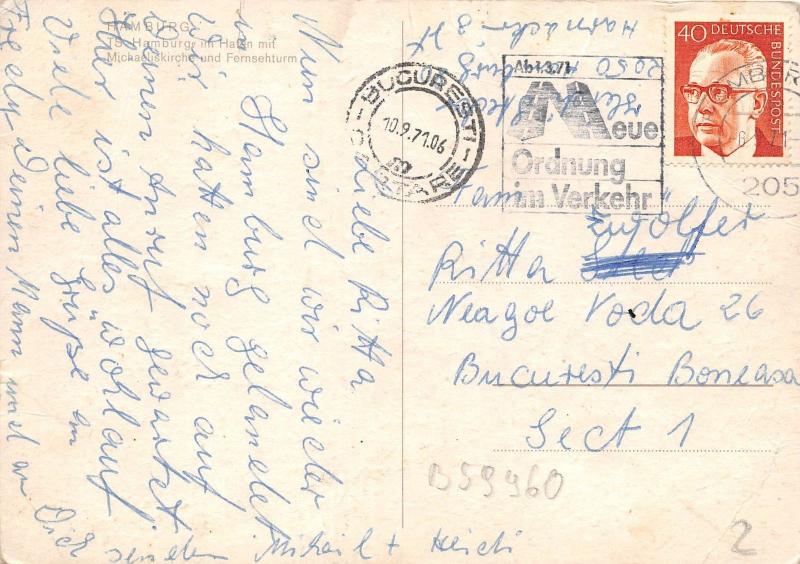 HAMBURG
TS „Hamburg“ im Hafen mit
Michaeliskirche und Fernsehturm
Liebe Ritta
Nun sind wir wieder
in Hamburg gelandet
Wir hatten noch auf
Deinen Anruf gewartet
Hier ist alles wohlauf
Viele liebe Grüße an
Fredy Deinen Mann und an Dich
senden Mihail + Heidi
2050 Hamburg
BUCURESTI
10.9.71.06
CARTARE
Ab 1.3.71
Neue
Ordnung
im Verkehr
40 DEUTSCHE
BUNDESPOST
205
Fam Engölfer
Ritta
Neagoe Voda 26
Bucuresti Boneasa
Sect 1
B59960
2